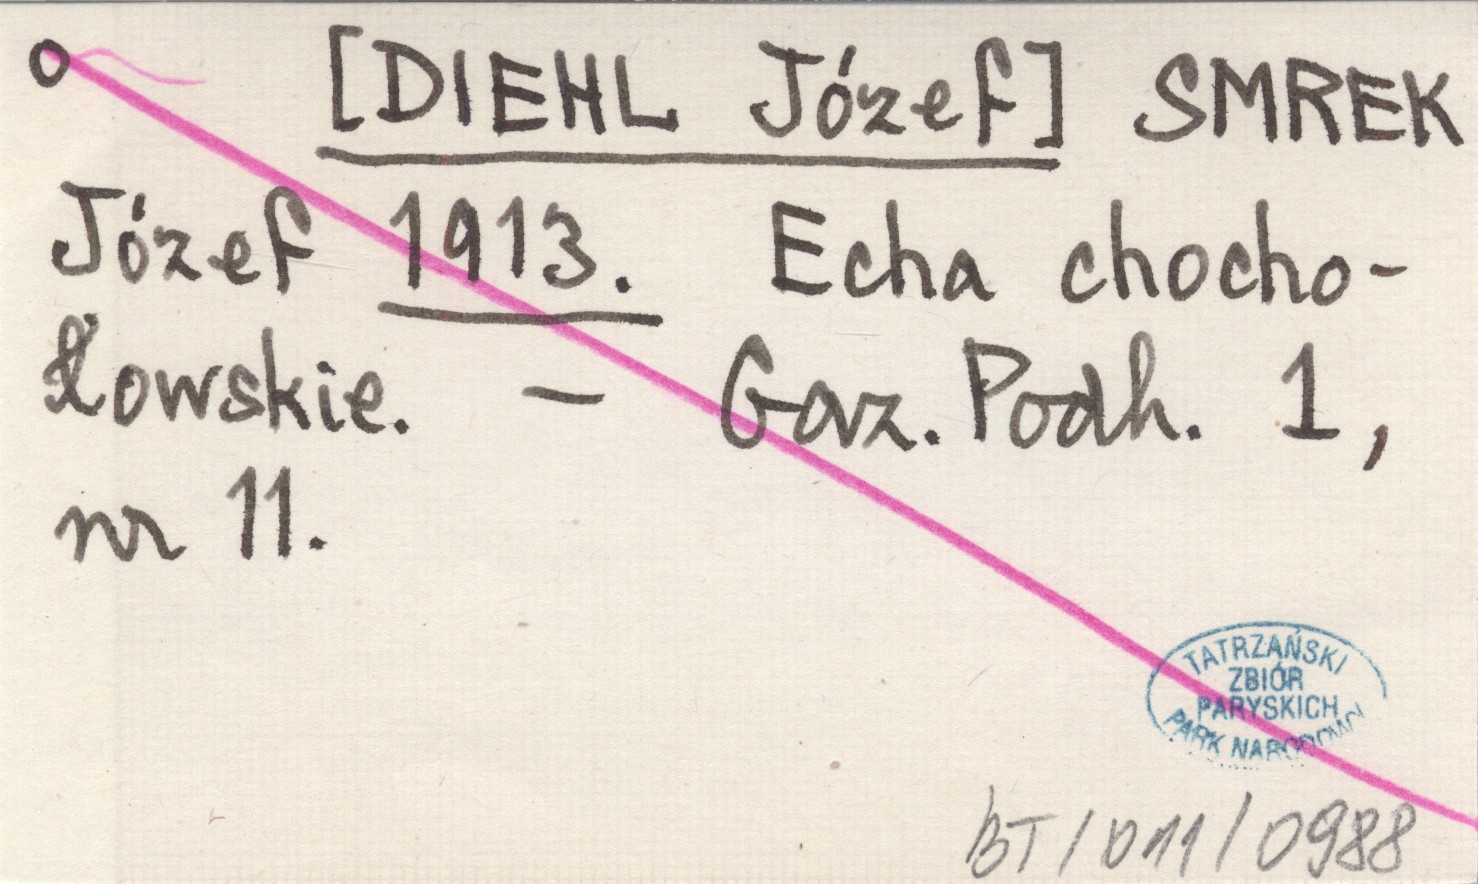 o [DIEHL Józef] SMREK
Józef 1913. Echa chocho-
łowskie. - Gaz. Podh. 1,
nr 11.
TATRZAŃSKI
ZBIÓR
PARYSKICH
PARK NARODOWY
BT/011/0988